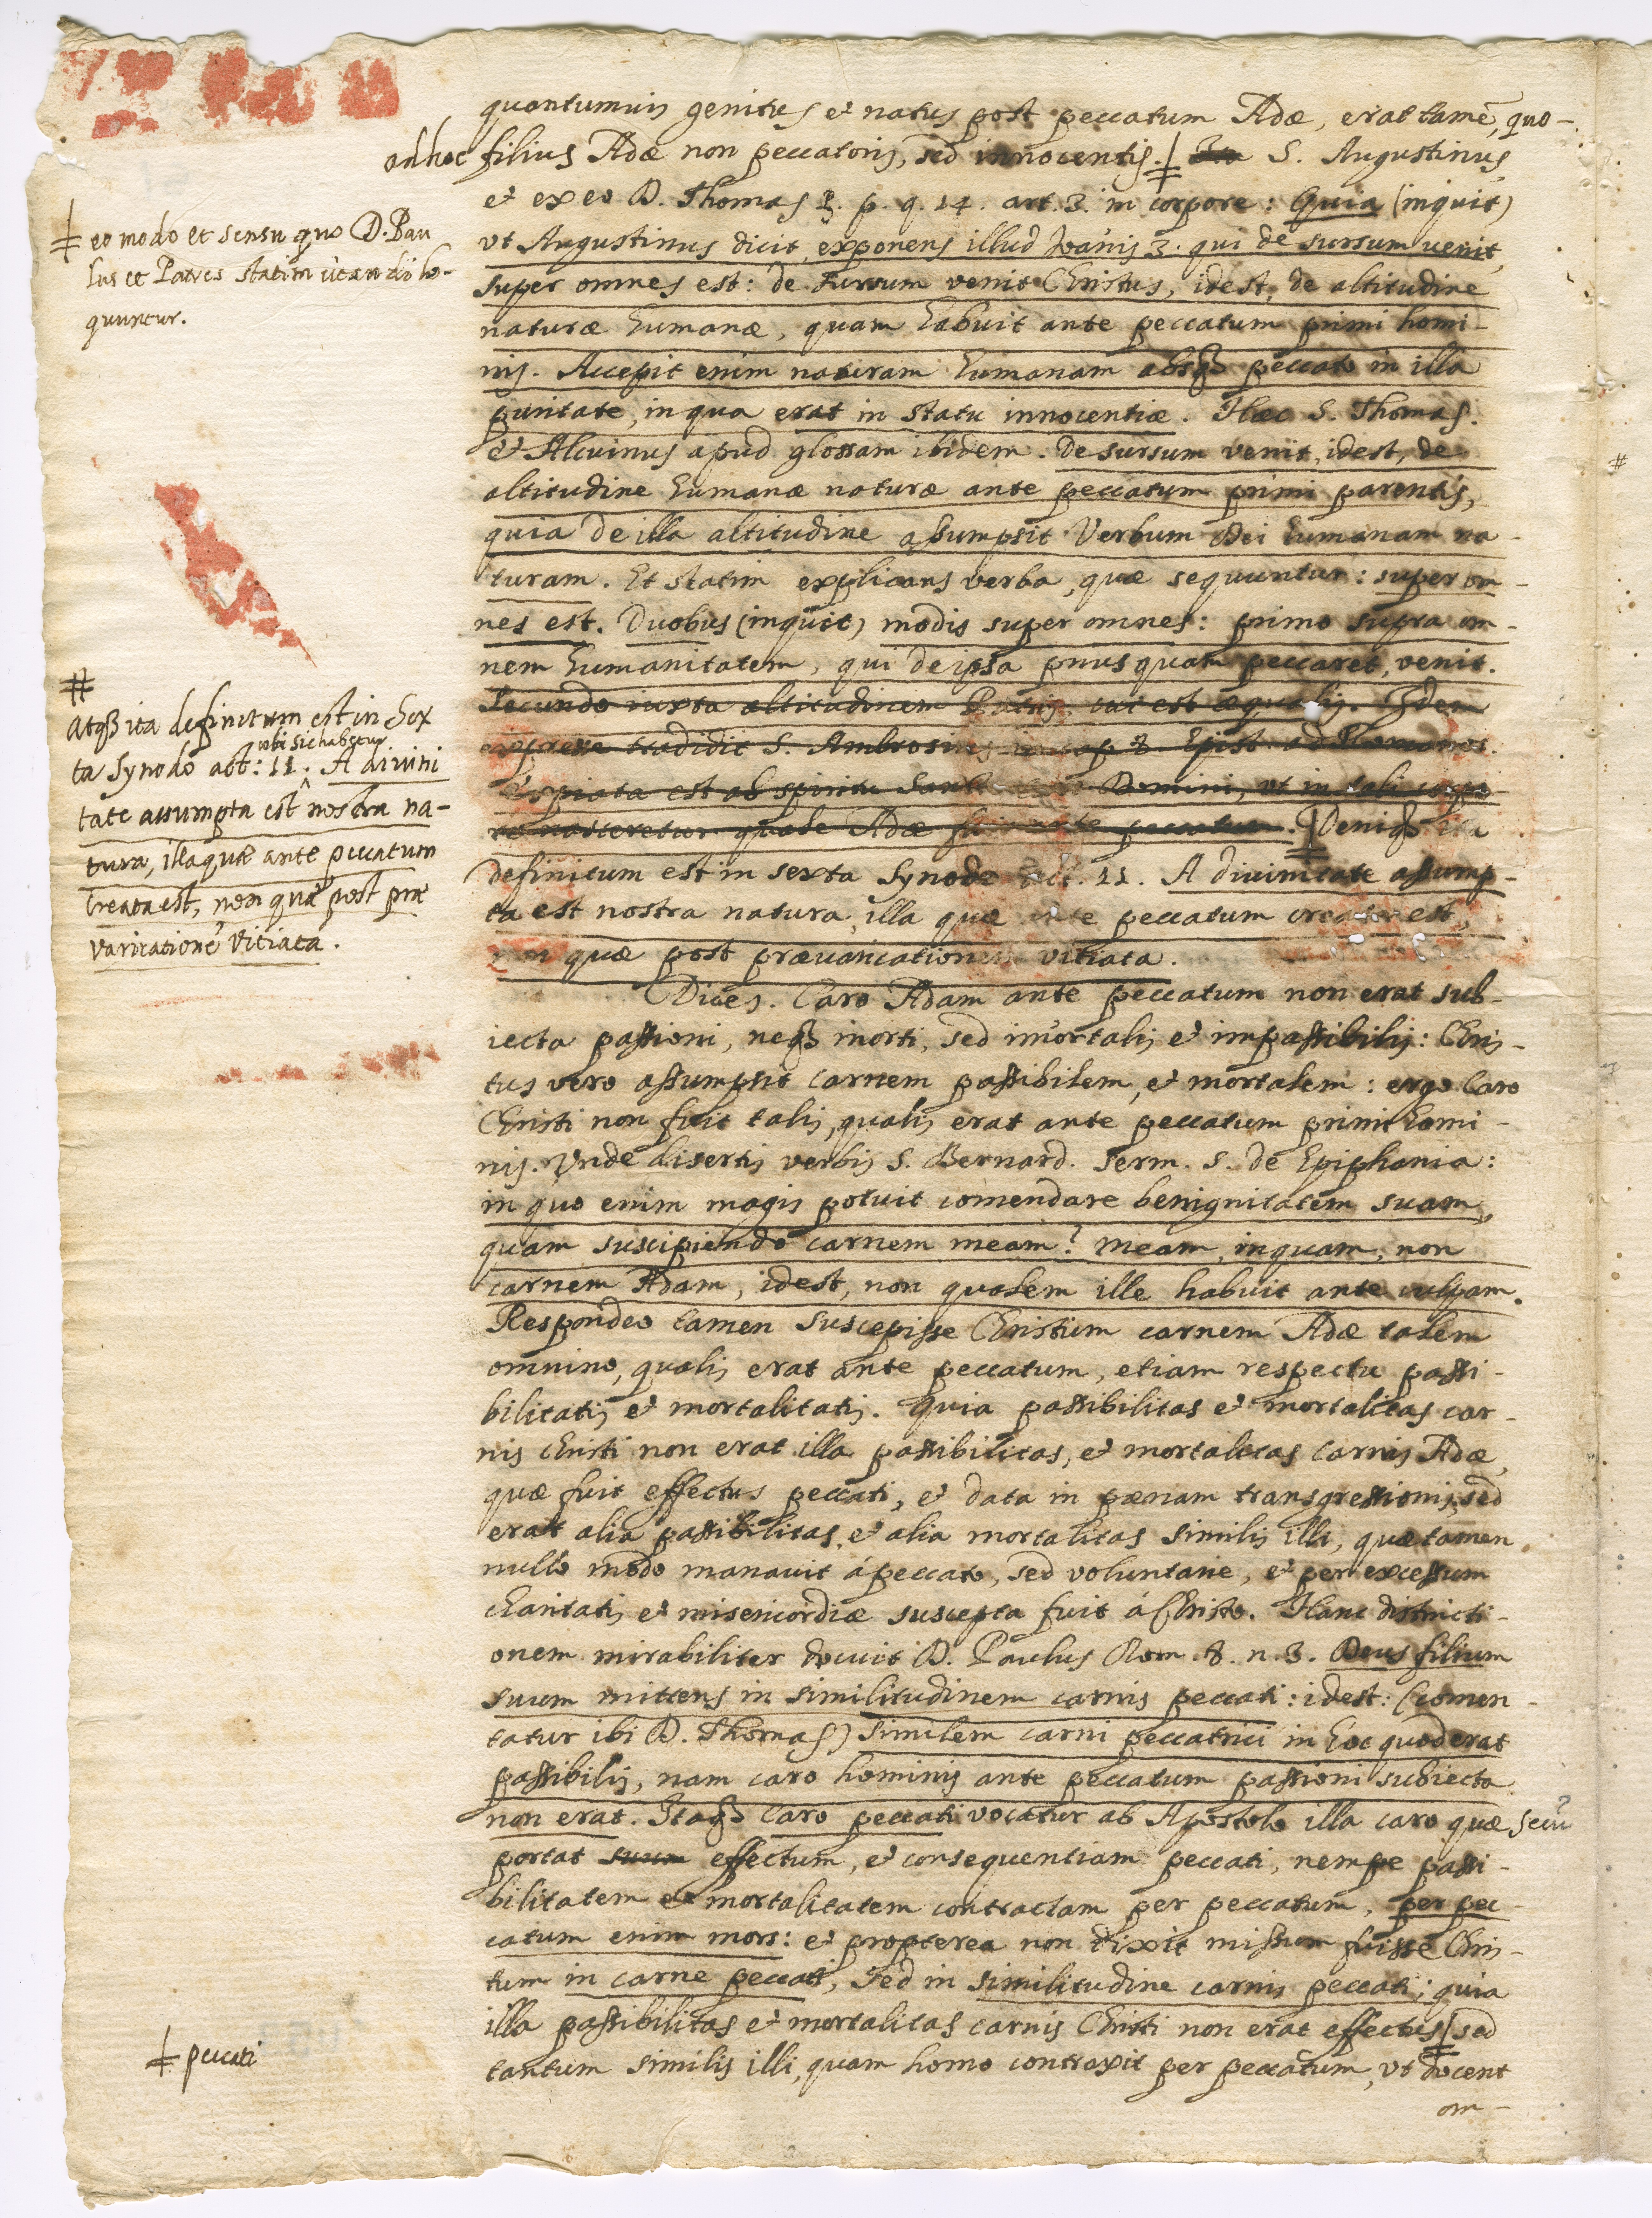 quantumuis genitus et natus post peccatum Adæ, erat tamē, quo-
ad hoc filius Adæ non peccatoris, sed innocentis. Ita S. Augustinus
et ex eo D. Thomas 3. p. q. 14. art. 3. in corpore: Quia (inquit)
vt Augustinus dicit, exponens illud Ioānis 3. qui de sursum uenit,
super omnes est: de sursum venit Christus, idest, de altitudine
naturæ humanæ, quam habuit ante peccatum primi homi-
nis. Accepit enim naturam humanam absqȝ peccato in illa
puritate, in qua erat in statu innocentiæ. Hæc S. Thomas.
et Alcuinus apud glossam ibidem. De sursum venit, idest, de
altitudine humanæ naturæ ante peccatum primi parentis,
quia de illa altitudine assumpsit Verbum Dei humanam na-
turam. Et statim explicans verba, quæ sequuntur: super om-
nes est. Duobus (inquit) modis super omnes: primo supra om-
nem humanitatem, qui de ipsa priusquam peccaret, venit.
Secundo iuxta altitudinem Patris, cui est æqualis. Idem
expresse tradidit S. Ambrosius in cap. 8. Epist. ad Romanos.
Expiata est ab spiritu Sancto Domini, vt in tali corpo-
re nasceretur quale Adæ fuit ante peccatum. Deniqȝ ita
definitum est in sexta Synodo Act. 11. A diuinitate assump-
ta est nostra natura, illa quæ ante peccatum creata est,
non quæ post præuaricationem vitiata.
Dices. Caro Adam ante peccatum non erat sub-
iecta passioni, neqȝ morti, sed im̄ortalis et impassibilis: Chris-
tus vero assumpsit carnem passibilem, et mortalem: ergo Caro
Christi non fuit talis, qualis erat ante peccatum primi homi-
nis. Vnde disertis verbis S. Bernard. Serm. S. de Epiphania:
in quo enim magis potuit com̄endare benignitatem suam,
quam suscipiendo carnem meam? meam, inquam, non
carnem Adam, idest, non qualem ille habuit ante culpam.
Respondeo tamen suscepisse Christum carnem Adæ talem
omnino, qualis erat ante peccatum, etiam respectu passi-
bilitatis et mortalitatis. Quia passibilitas et mortalitas car-
nis Christi non erat illa passibilitas, et mortalitas carnis Adæ,
quæ fuit effectus peccati, et data in pænam transgressionis, sed
erat alia passibilitas, et alia mortalitas similis illi, quæ tamen
nullo modo manauit á peccato, sed voluntarie, et per excessum
charitatis et misericordiæ suscepta fuit á Christo. Hanc distincti-
onem mirabiliter docuit D. Paulus Rom. 8. n. 3. Deus filium
suum mittens in similitudinem carnis peccati: idest: (com̄en-
tatur ibi D. Thomas) similem carni peccatrici in hoc quod erat
passibilis, nam caro hominis ante peccatum passioni subiecta
non erat. Itaqȝ Caro peccati vocatur ab Apostolo illa caro quæ secū
portat suum effectum, et consequentiam peccati, nempe passi-
bilitatem et mortalitatem contractam per peccatum, per pec-
catum enim mors: et propterea non dixit missum fuisse Chris-
tum in carne peccati, sed in similitudine carnis peccati; quia
illa passibilitas et mortalitas carnis Christi non erat effectus sed
tantum similis illi, quam homo contraxit per peccatum, vt docent
om-
eo modo et sensu quo D. Pau
lus et Patres statim
quuntur.
#
Atqȝ ita definitum est in Sex
ta Synodo act: 11. ubi sic habetur A diuini
tate assumpta est nostra na-
tura, illa quæ ante peccatum
creata est, non quæ post præ
varicationē vitiata.
peccati
#